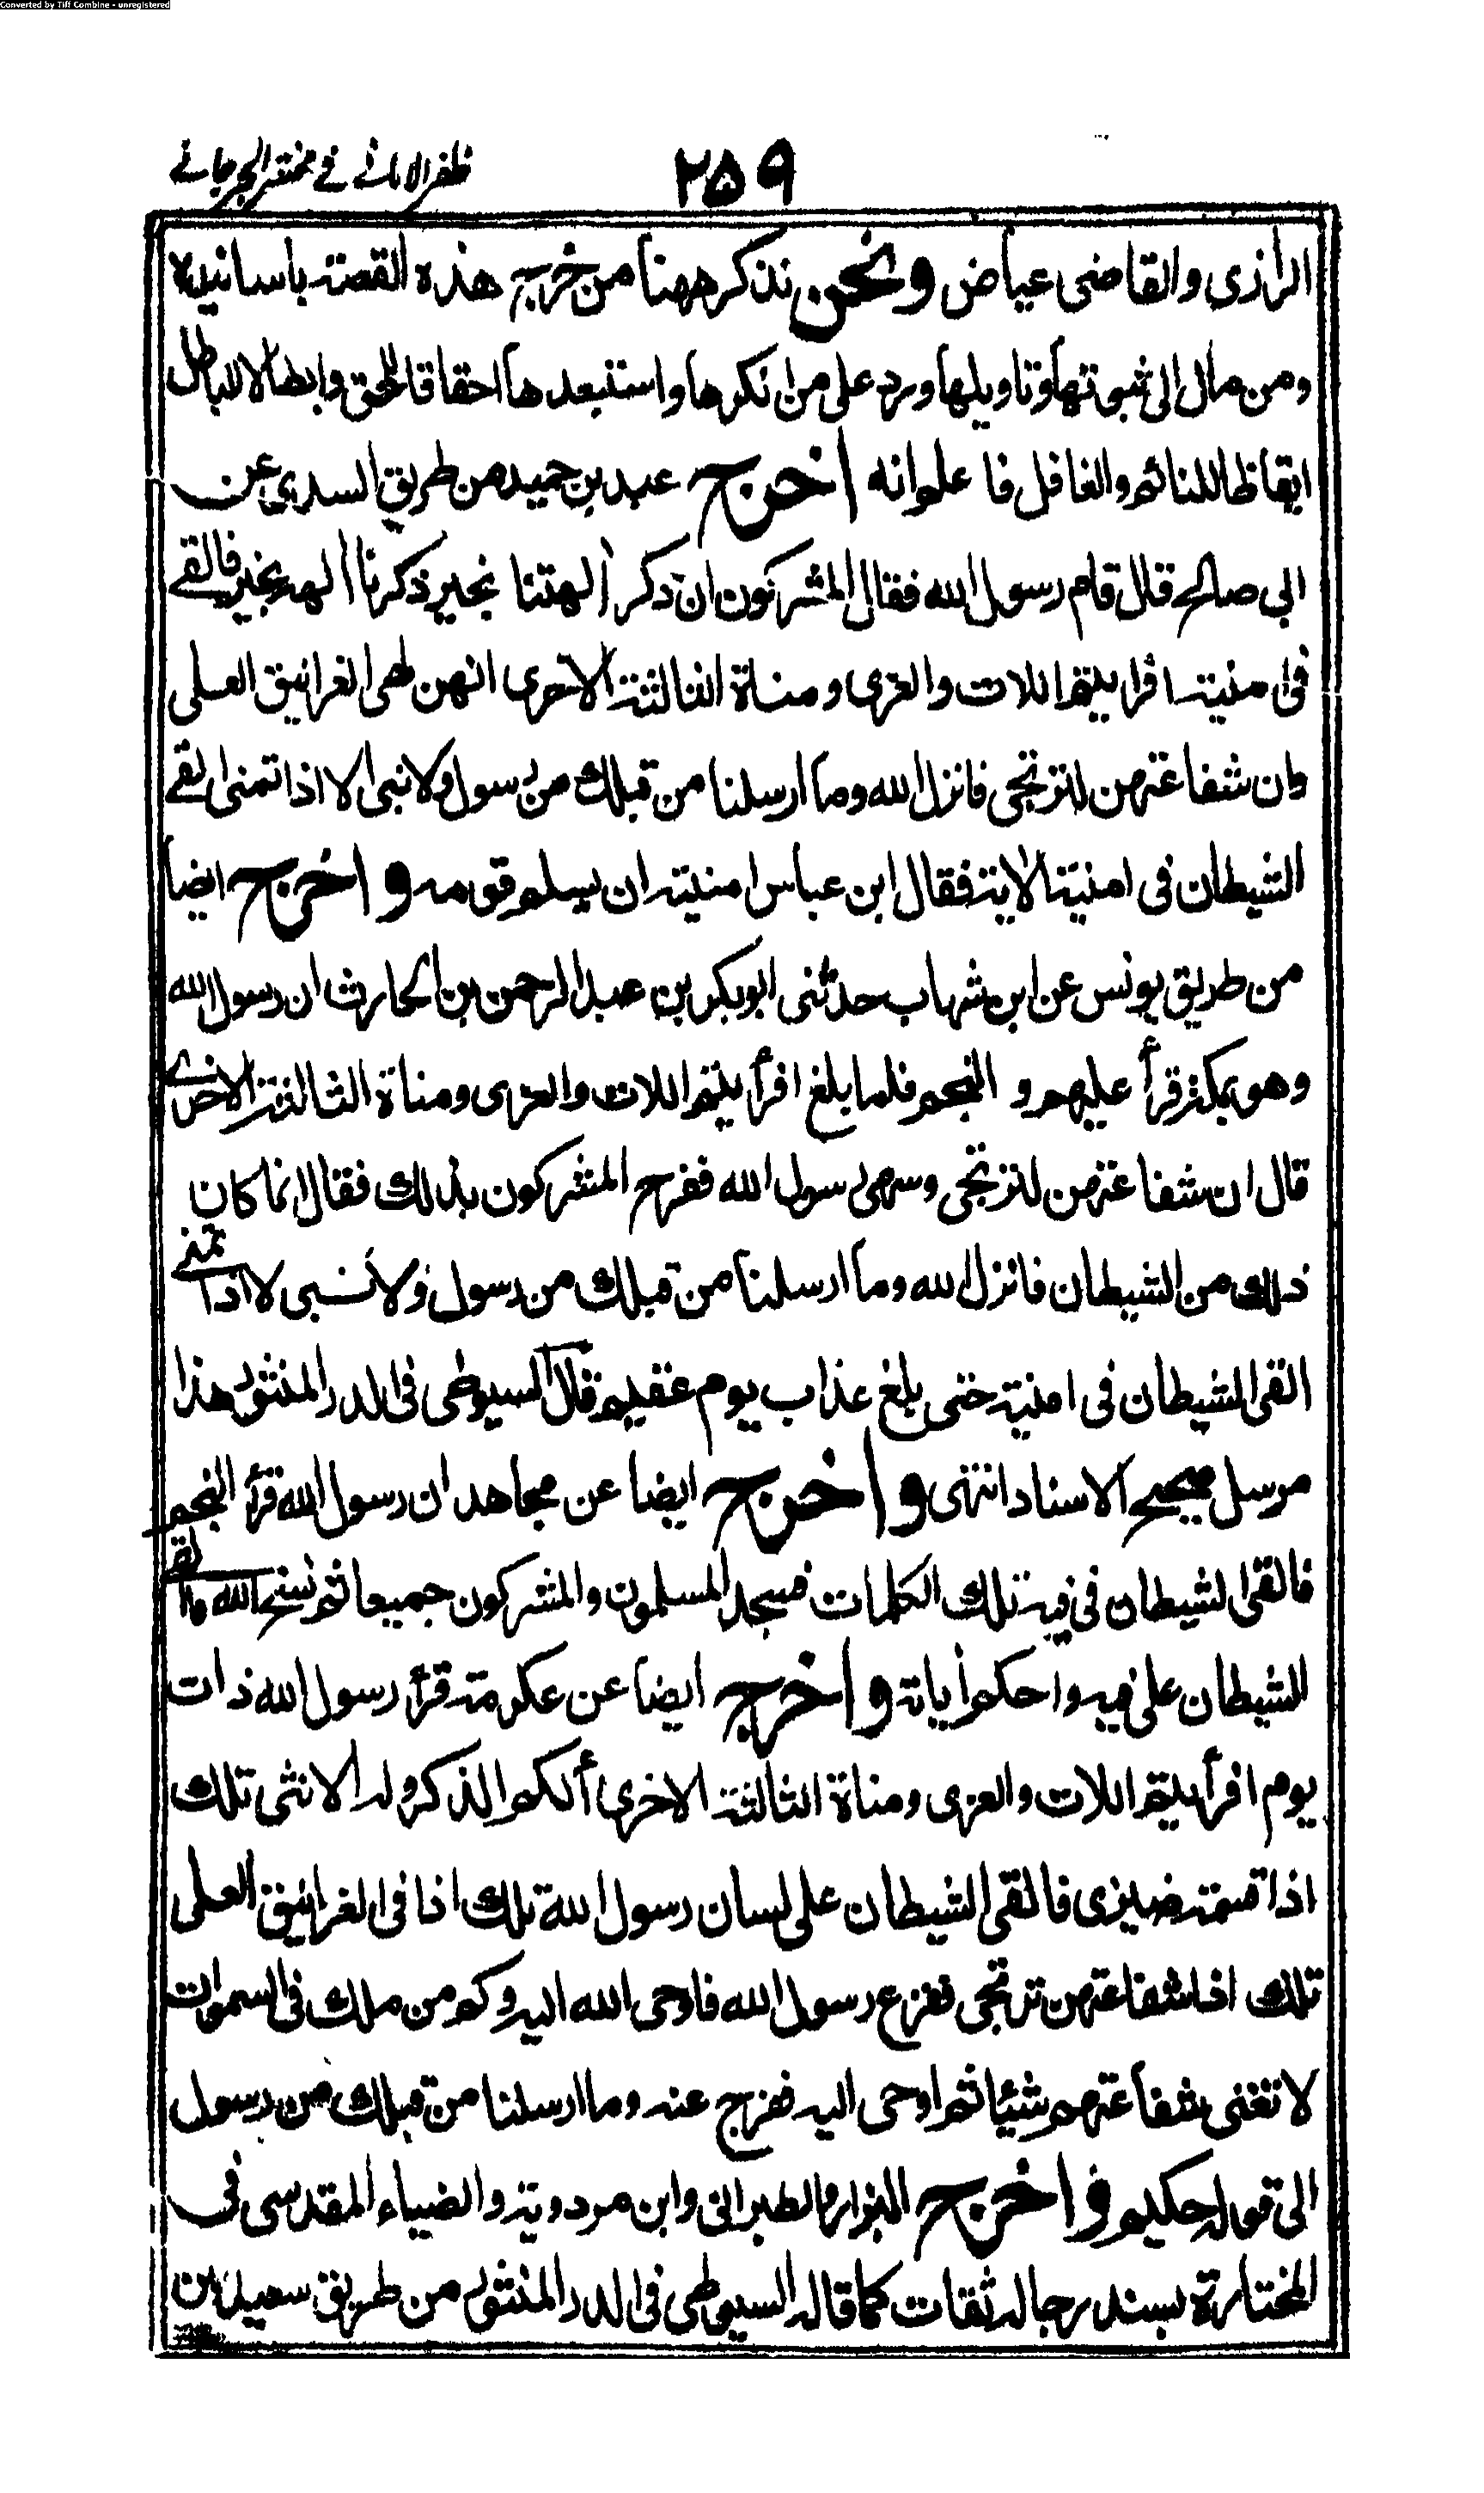 Converted by Tiff Combine - unregistered
ظفر الامانے فے مختصر الجرجانے
٢٥٩
الرازى والقاضى عياض ونحن نذكر ههنا من خرج هذه القصة باسانيده
ومن مال الى ثبوتها وتاويلها ورد على من انكرها واستبعدها احقاقا للحق وابطالا للباطل
ايقاظا للنائم والغافل فاعلم انه اخرج عبد بن حميد من طريق السدي عن
ابى صالح قال قام رسول الله فقال المشركون ان ذكر الهتنا بخير ذكرنا الهه بخير فالقے
فى امنيته افرايتم اللات والعزى ومناة الثالثة الاخرى انهن لهى الغرانيق العلى
وان شفاعتهن لترتجى فانزل الله وما ارسلنا من قبلك من رسول ولا نبى الا اذا تمنى القے
الشيطان فى امنيته الاية فقال ابن عباس امنيته ان يسلم قومه واخرج ايضا
من طريق يونس عن ابن شهاب حدثنى ابو بكر بن عبد الرحمن بن الحارث ان رسول الله
وهو بمكة قرأ عليهم والنجم فلما بلغ افرأيتم اللات والعزى ومناة الثالثة الاخرے
قال ان شفاعتهن لترتجى وسهى رسول الله ففرح المشركون بذلك فقال انما كان
ذلك من الشيطان فانزل الله وما ارسلنا من قبلك من رسول ولا نبى الا اذا تمنے
القى الشيطان فى امنيته حتى بلغ عذاب يوم عقيم قال السيوطى فى الدر المنثور هذا
مرسل صحيح الاسناد انتهى واخرج ايضا عن مجاهد ان رسول الله قرأ النجم
فالقى الشيطان فى فيه تلك الكلمات فسجد المسلمون والمشركون جميعا ثم نسخ الله ما القے
الشيطان على فيه واحكم أياته واخرج ايضا عن عكرمة قرأ رسول الله ذات
يوم افرأيتم اللات والعزى ومناة الثالثة الاخرى ألكم الذكر وله الانثى تلك
اذا قسمة ضيزى فالقى الشيطان على لسان رسول الله تلك اذا فى الغرانيق العلى
تلك اذا شفاعتهن ترتجى ففزع رسول الله فاوحى الله اليه وكم من ملك فى السموات
لا تغنى شفاعتهم شيئا ثم اوحى اليه ففرج عنه وما ارسلنا من قبلك من رسول
الى قوله حكيم واخرج البزار والطبرانى وابن مردوية والضياء المقدسى فى
المختارة بسند رجاله ثقات كما قاله السيوطى فى الدر المنثور من طريق سعيد بن